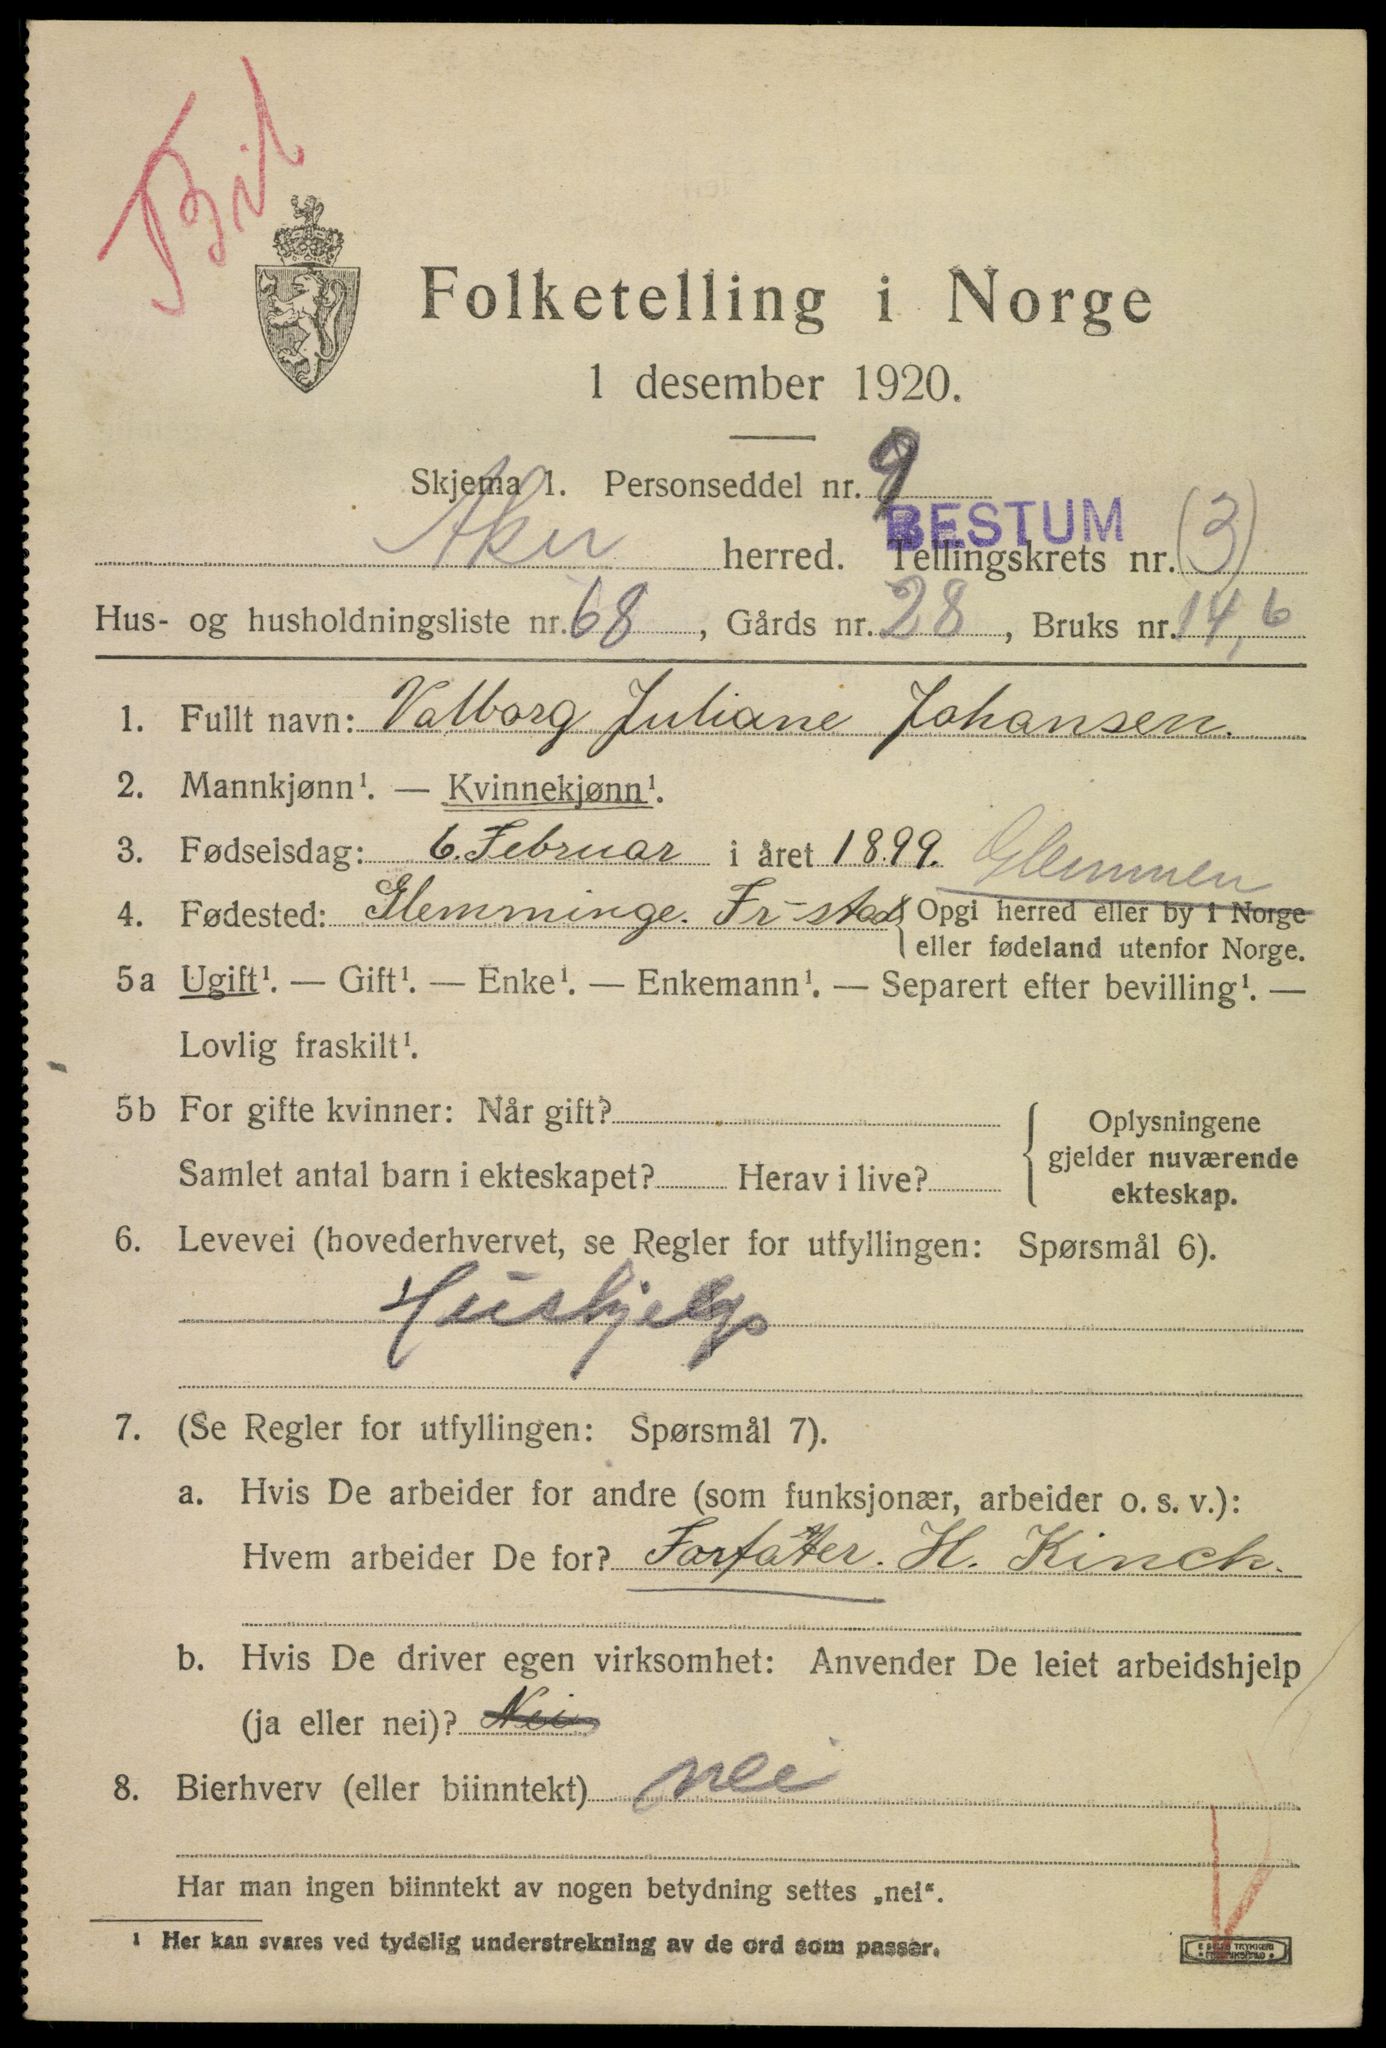 Folketelling i Norge
1 desember 1920.
Skjema 1. Personseddel nr. 9
BESTUM
Aker herred. Tellingskrets nr. (3)
Hus- og husholdningsliste nr. 68, Gårds nr. 28, Bruks nr. 14,6
1. Fullt navn: Valborg Juliane Johansen.
2. Mannkjønn¹. — Kvinnekjønn¹.
3. Fødselsdag: 6. Februar i året 1899. Glemmen
4. Fødested: Glemminge. Fr-stad { Opgi herred eller by i Norge
eller fødeland utenfor Norge.
5a Ugift¹. — Gift¹. — Enke¹. — Enkemann¹. — Separert efter bevilling¹. —
Lovlig fraskilt¹.
5b For gifte kvinner: Når gift?
Samlet antal barn i ekteskapet? Herav i live?
Oplysningene
gjelder nuværende
ekteskap.
6. Levevei (hovederhvervet, se Regler for utfyllingen: Spørsmål 6).
Hushjelp
7. (Se Regler for utfyllingen: Spørsmål 7).
a. Hvis De arbeider for andre (som funksjonær, arbeider o. s. v.):
Hvem arbeider De for? Forfatter. H. Kinch.
b. Hvis De driver egen virksomhet: Anvender De leiet arbeidshjelp
(ja eller nei)? Nei
8. Bierhverv (eller biinntekt) nei
Har man ingen biinntekt av nogen betydning settes „nei“.
¹ Her kan svares ved tydelig understrekning av de ord som passer.